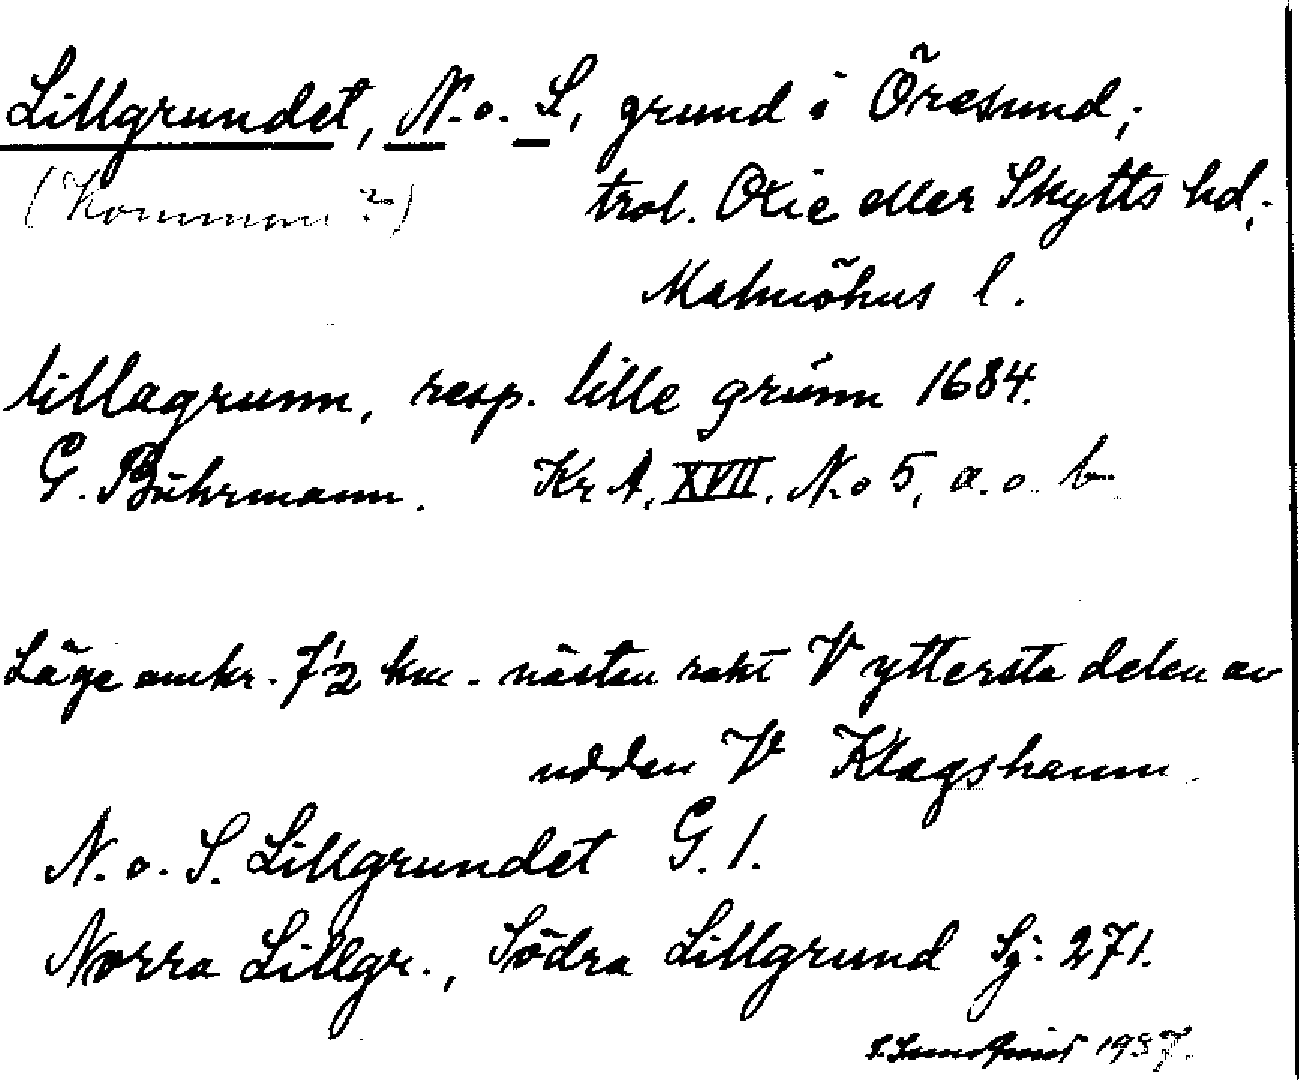 Lillgrundet, N. o. S, grund i Öresund;
(Kommun ?) trol. Oxie eller Skytts hd,
Malmöhus l.
lillagrunn, resp. lille grunn 1684.
G. Buhrmann. Kr A. XVII. No 5, a. o. b
Läge omkr. 7½ km. nästan rakt V ytterste delen av
udden V Klagshamn.
N. o. S. Lillgrundet G. 1.
Norra Lillgr., Södra Lillgrund Sj: 271.
1937.